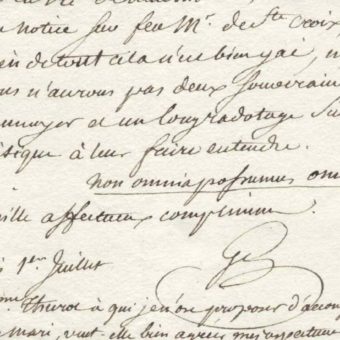 notice sur feu Mr. de Ste Croix,
de tout cela n'est bien gai, n
n'aurons pas deux souverain
ennuyer et un long radotage su
sique à leur faire entendre.
non omnia possumus om
mille affectueux complimens.
1er Juillet
Thurot à qui je n'ose proposer d'accom
mari, veut-elle bien agréer mes